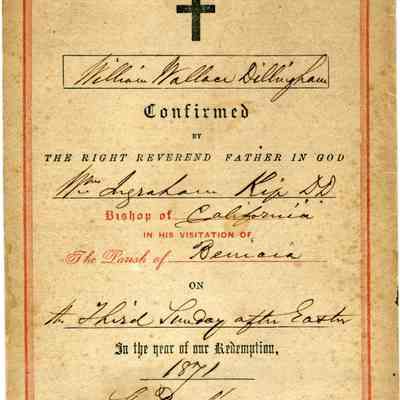 William Wallace Dillingham
Confirmed
BY
THE RIGHT REVEREND FATHER IN GOD
Wm Ingraham Kip DD
Bishop of California
IN HIS VISITATION OF
The Parish of Benicia
ON
the Third Sunday after Easter
In the year of our Redemption,
1871